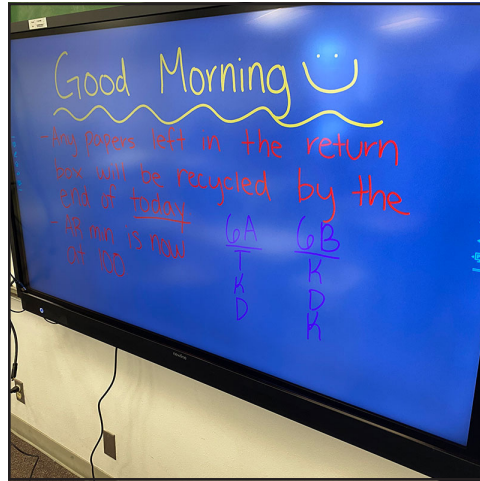 Good Morning
- Any papers left in the return
box will be recycled by the
end of today
- AR min is now
at 100
6A
T
K
D
6B
K
D
K